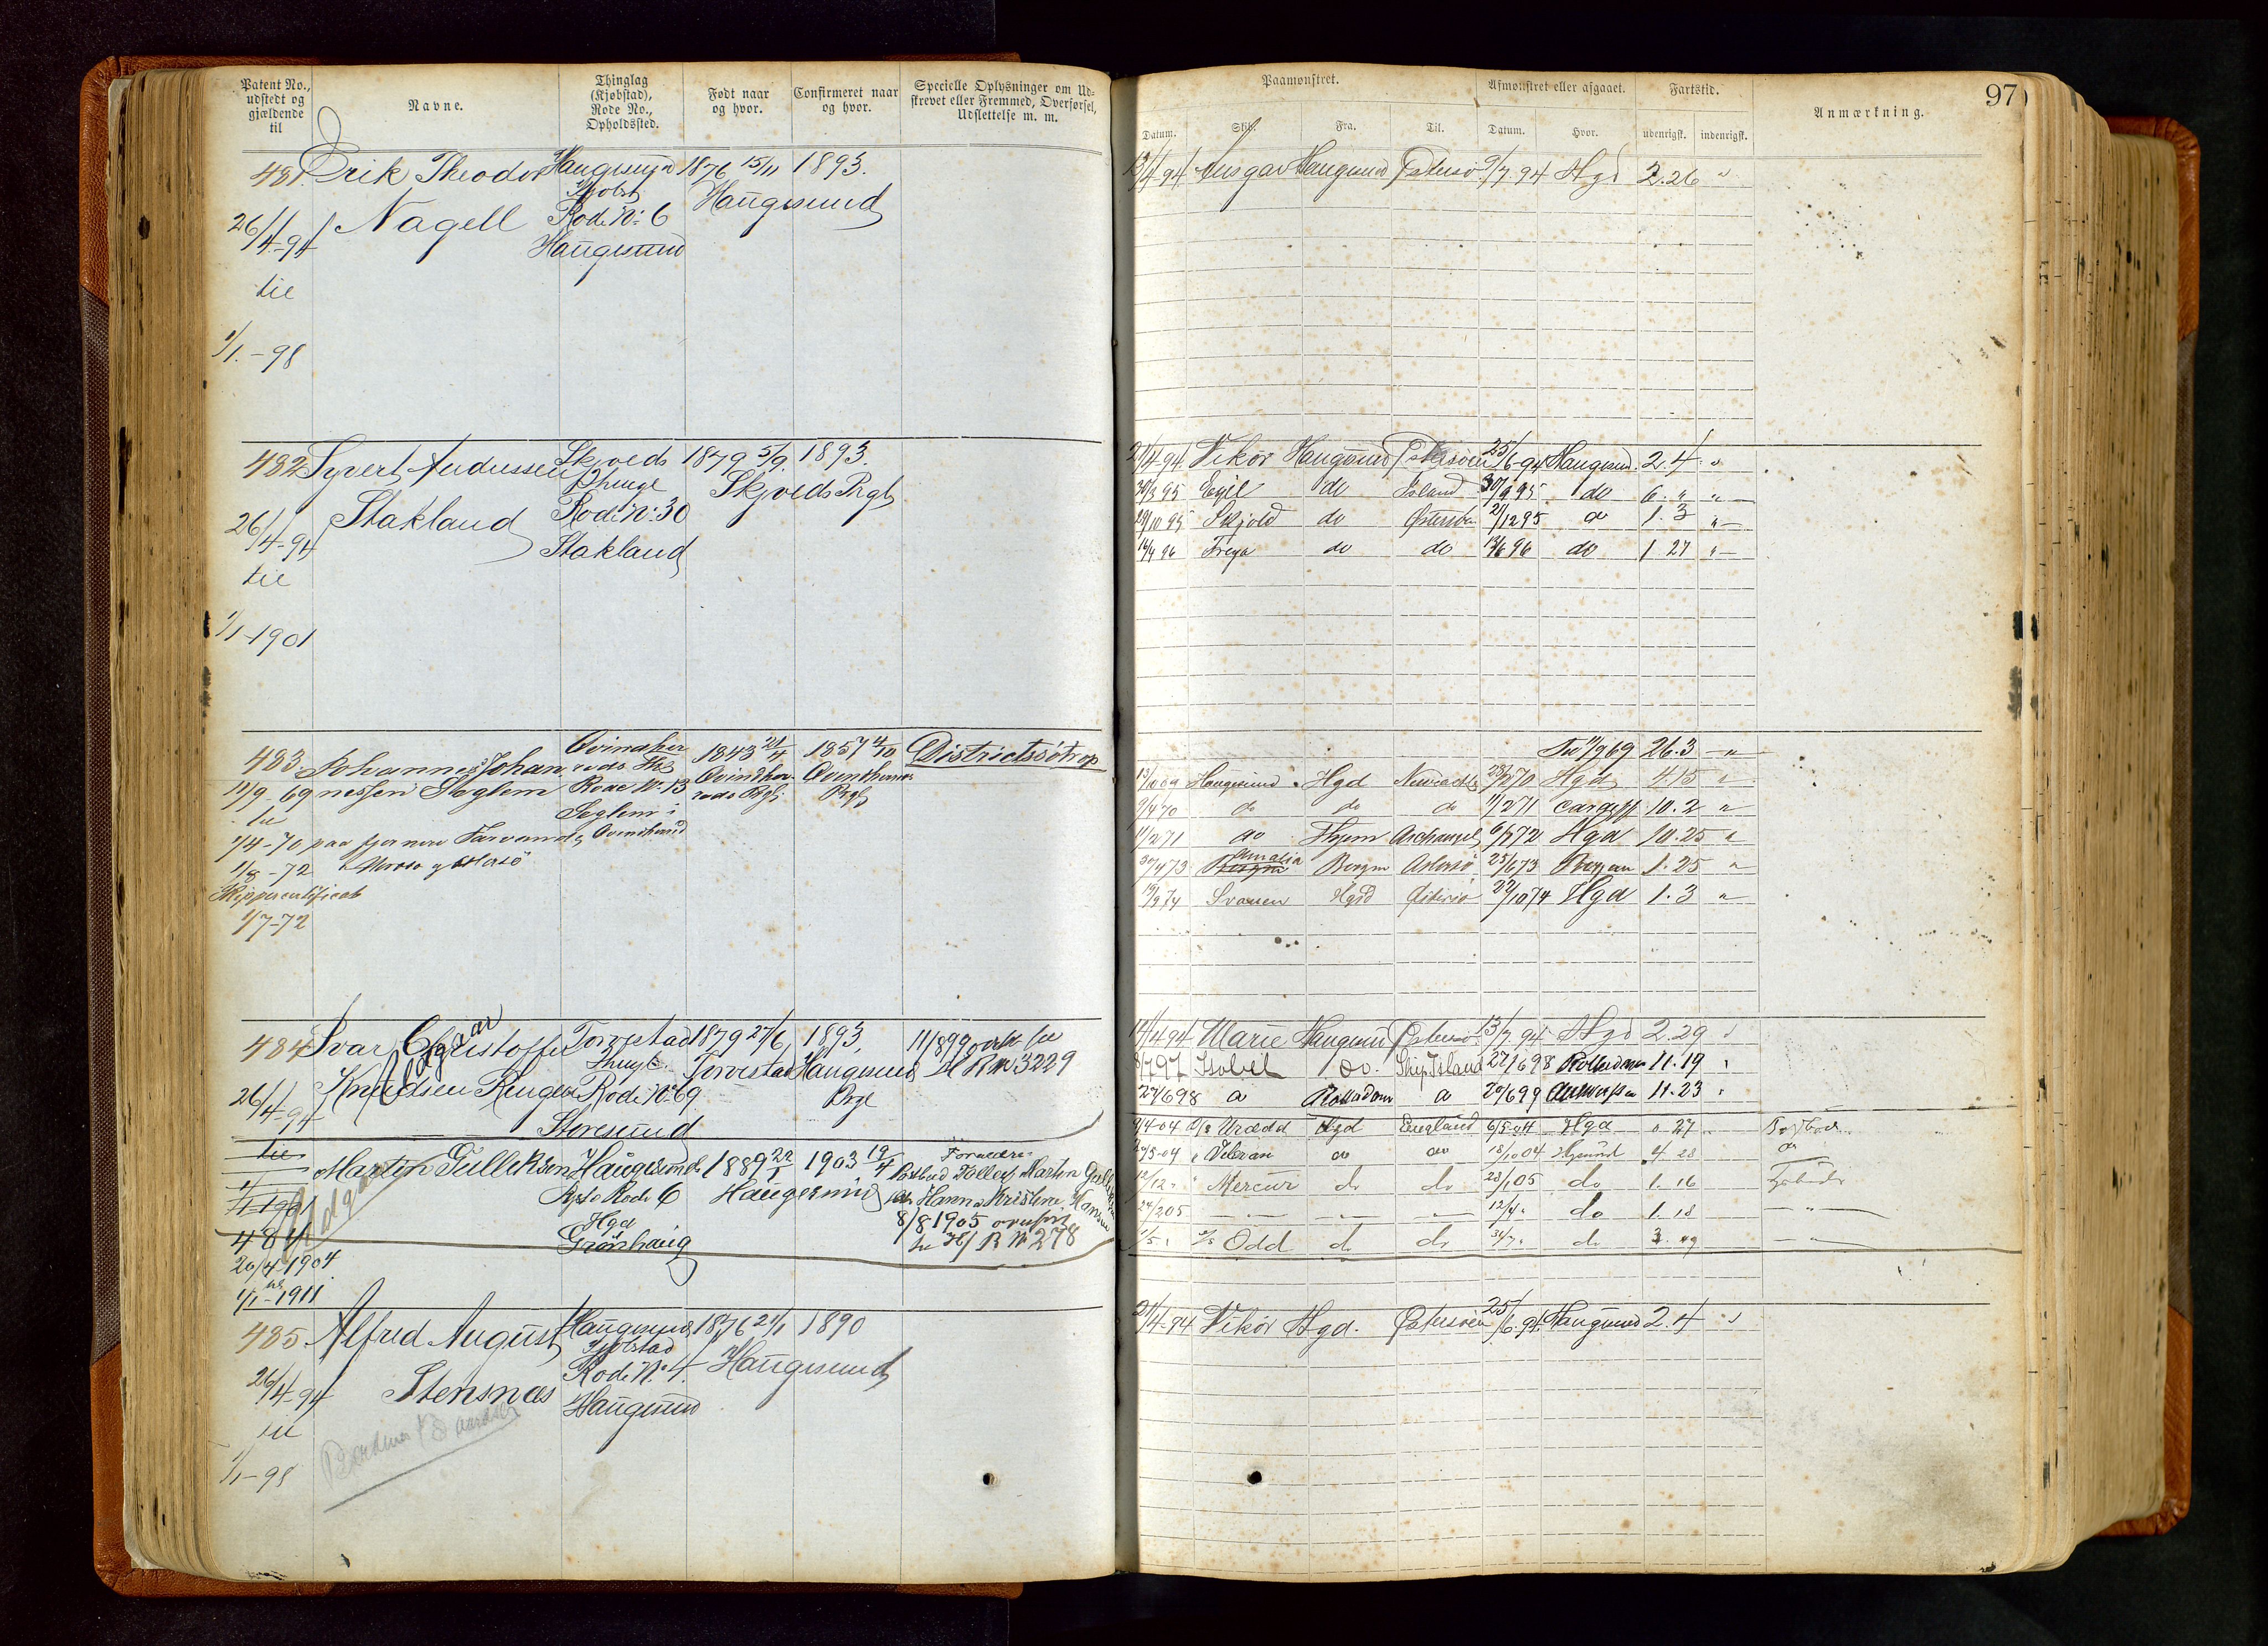 Patent No., udstedt og gjældende til
Navne.
Thinglag (Kjøbstad), Rode No., Opholdssted.
Født naar og hvor.
Confirmeret naar og hvor.
Specielle Oplysninger om Udskrevet eller Fremmed, Overførsel, Udslettelse m. m.
Paamønstret.
Afmønstret eller afgaaet.
Fartstid.
Anmærkning.
97
Datum. Skib. Fra. Til. Datum. Hvor. udenrigsk. indenrigsk.
481. Erik Theodor Haugesund 1876 15/11 1893.
Kjøbst
26/4-94 Nagell Rode No: 6 Haugesund
Haugesund
til
1/1.-98
Ansgar Haugesund Østersö 9/7 94 Hgd 2.26 "
482 Syvert Andussen Skjolds 1879 5/9 1893.
Thinge Skjolds Prgl
26/4-94 Stakland Rode No: 30
Stakland
til
1/1-1901
21/4-94 Vikör Haugesund Östersöen 25/6-94 Haugesund 2.4 "
30/3 95 Egil do Island 30/9 95 do 6. " "
29/10 95 Skjold do Østersöen 21/12 95 do 1. 3 "
14/4 96 Freya do do 13/6 96 do 1 27 "
483. Johannes Johan- 1843 21/4 1857 4/10 Districtssötrop
11/9-69 nessen Seglem Rode No. 13
til Seglem i
1/4-70 paa fjernere Farvand
1/8-72
Skippercertificat
1/7-72
Til 11/9 69 26.3 "
Haugesund Hgd 28/2 70 Hgd 4.15 "
9/4 70 do do do 11/2 71 Cardiff 10. 2 "
11/2 71 do Archangel 6/1 72 Hgd 10.25 "
30/4 73 Amalia Bergen Østersö 25/6 73 Bergen 1. 25 "
Svanen Hgsd Østersö 22/10 74 Hgd 1. 3 "
484 Ivar Christoffer Torvestad 1879 27/6 1893. 11/8 99 overf til
Thingl. Torvestad Haugesund H R No 3229
26/4-94 Knudsen Ringen Rode No. 69 Prgl
Storesund
Udgaar
14/4 94 Marie Haugesund Östersö 13/7.94 Hgd 2.29 "
Isobel do. Ship Island 27/6 98 Rotterdam 11.19 "
27/6 98 do Rotterdam do 20/6 99 Antwerpen 11.23 "
til
1/1-1901
Udgaar
Martin Gulleksen Haugesunds 1889 22/1 1903 19/4 Forældre:
Kjst Rode 6 Haugesund Martin Gulleksen
Hgd og Hanna Kristine Hansen
Grønhaug 8/8 1905 overført
til H/R No 278
484
20/4-1904
til
1/1-1911
9/4-04 D/s Uræd Hgd England 6/5-04 Hgd " 27 "
20/5-04 " Veteran do do 18/10 04 Hgsund 4 28
12/12 " " Mercur do do 28/1 05 do 1. 16
24/2 05 — — — 12/4 " do 1. 18 — " —
1/5 " D/s Odd do do 31/7 " do 3. 29 — " —
485 Alfred August Haugesund 1876 21/1 1890
Kjøbstad
26/4-94 Stensnæs Rode No. 4. Haugesund
Haugesund
til
1/1-98
21/4-94 Vikör Hgd. Östersöen 25/6.94 Haugesund 2.4 "